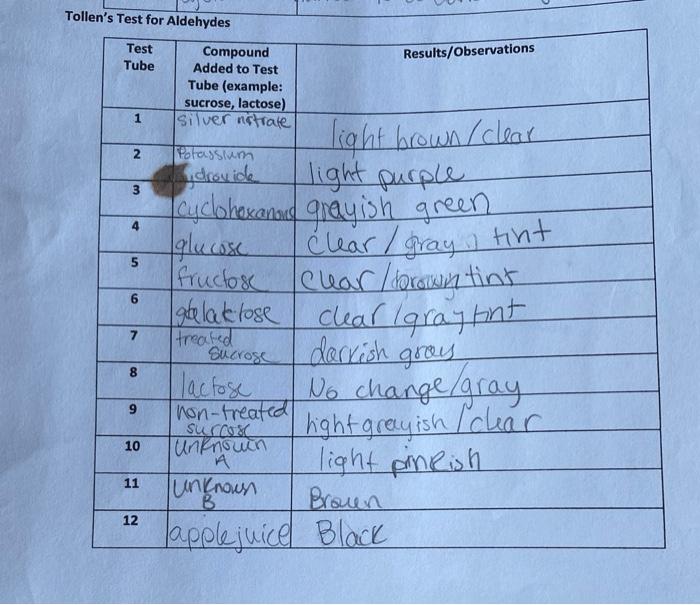 Tollen's Test for Aldehydes
Test Tube
Compound Added to Test Tube (example: sucrose, lactose)
Results/Observations
1 silver nitrate light brown/clear
2 Potassium light purple
3 grayish green
4 glucose clear / gray tint
5 fructose clear /brown tint
6 clear /gray tint
7 treated sucrose darkish gray
8 lactose No change/gray
9 non-treated light greyish /clear
10 Unknown A light
11 Unknown B
12 apple juice Black